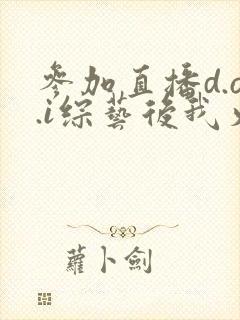 參加直播d.o
.i綜藝後我
蘿卜劍